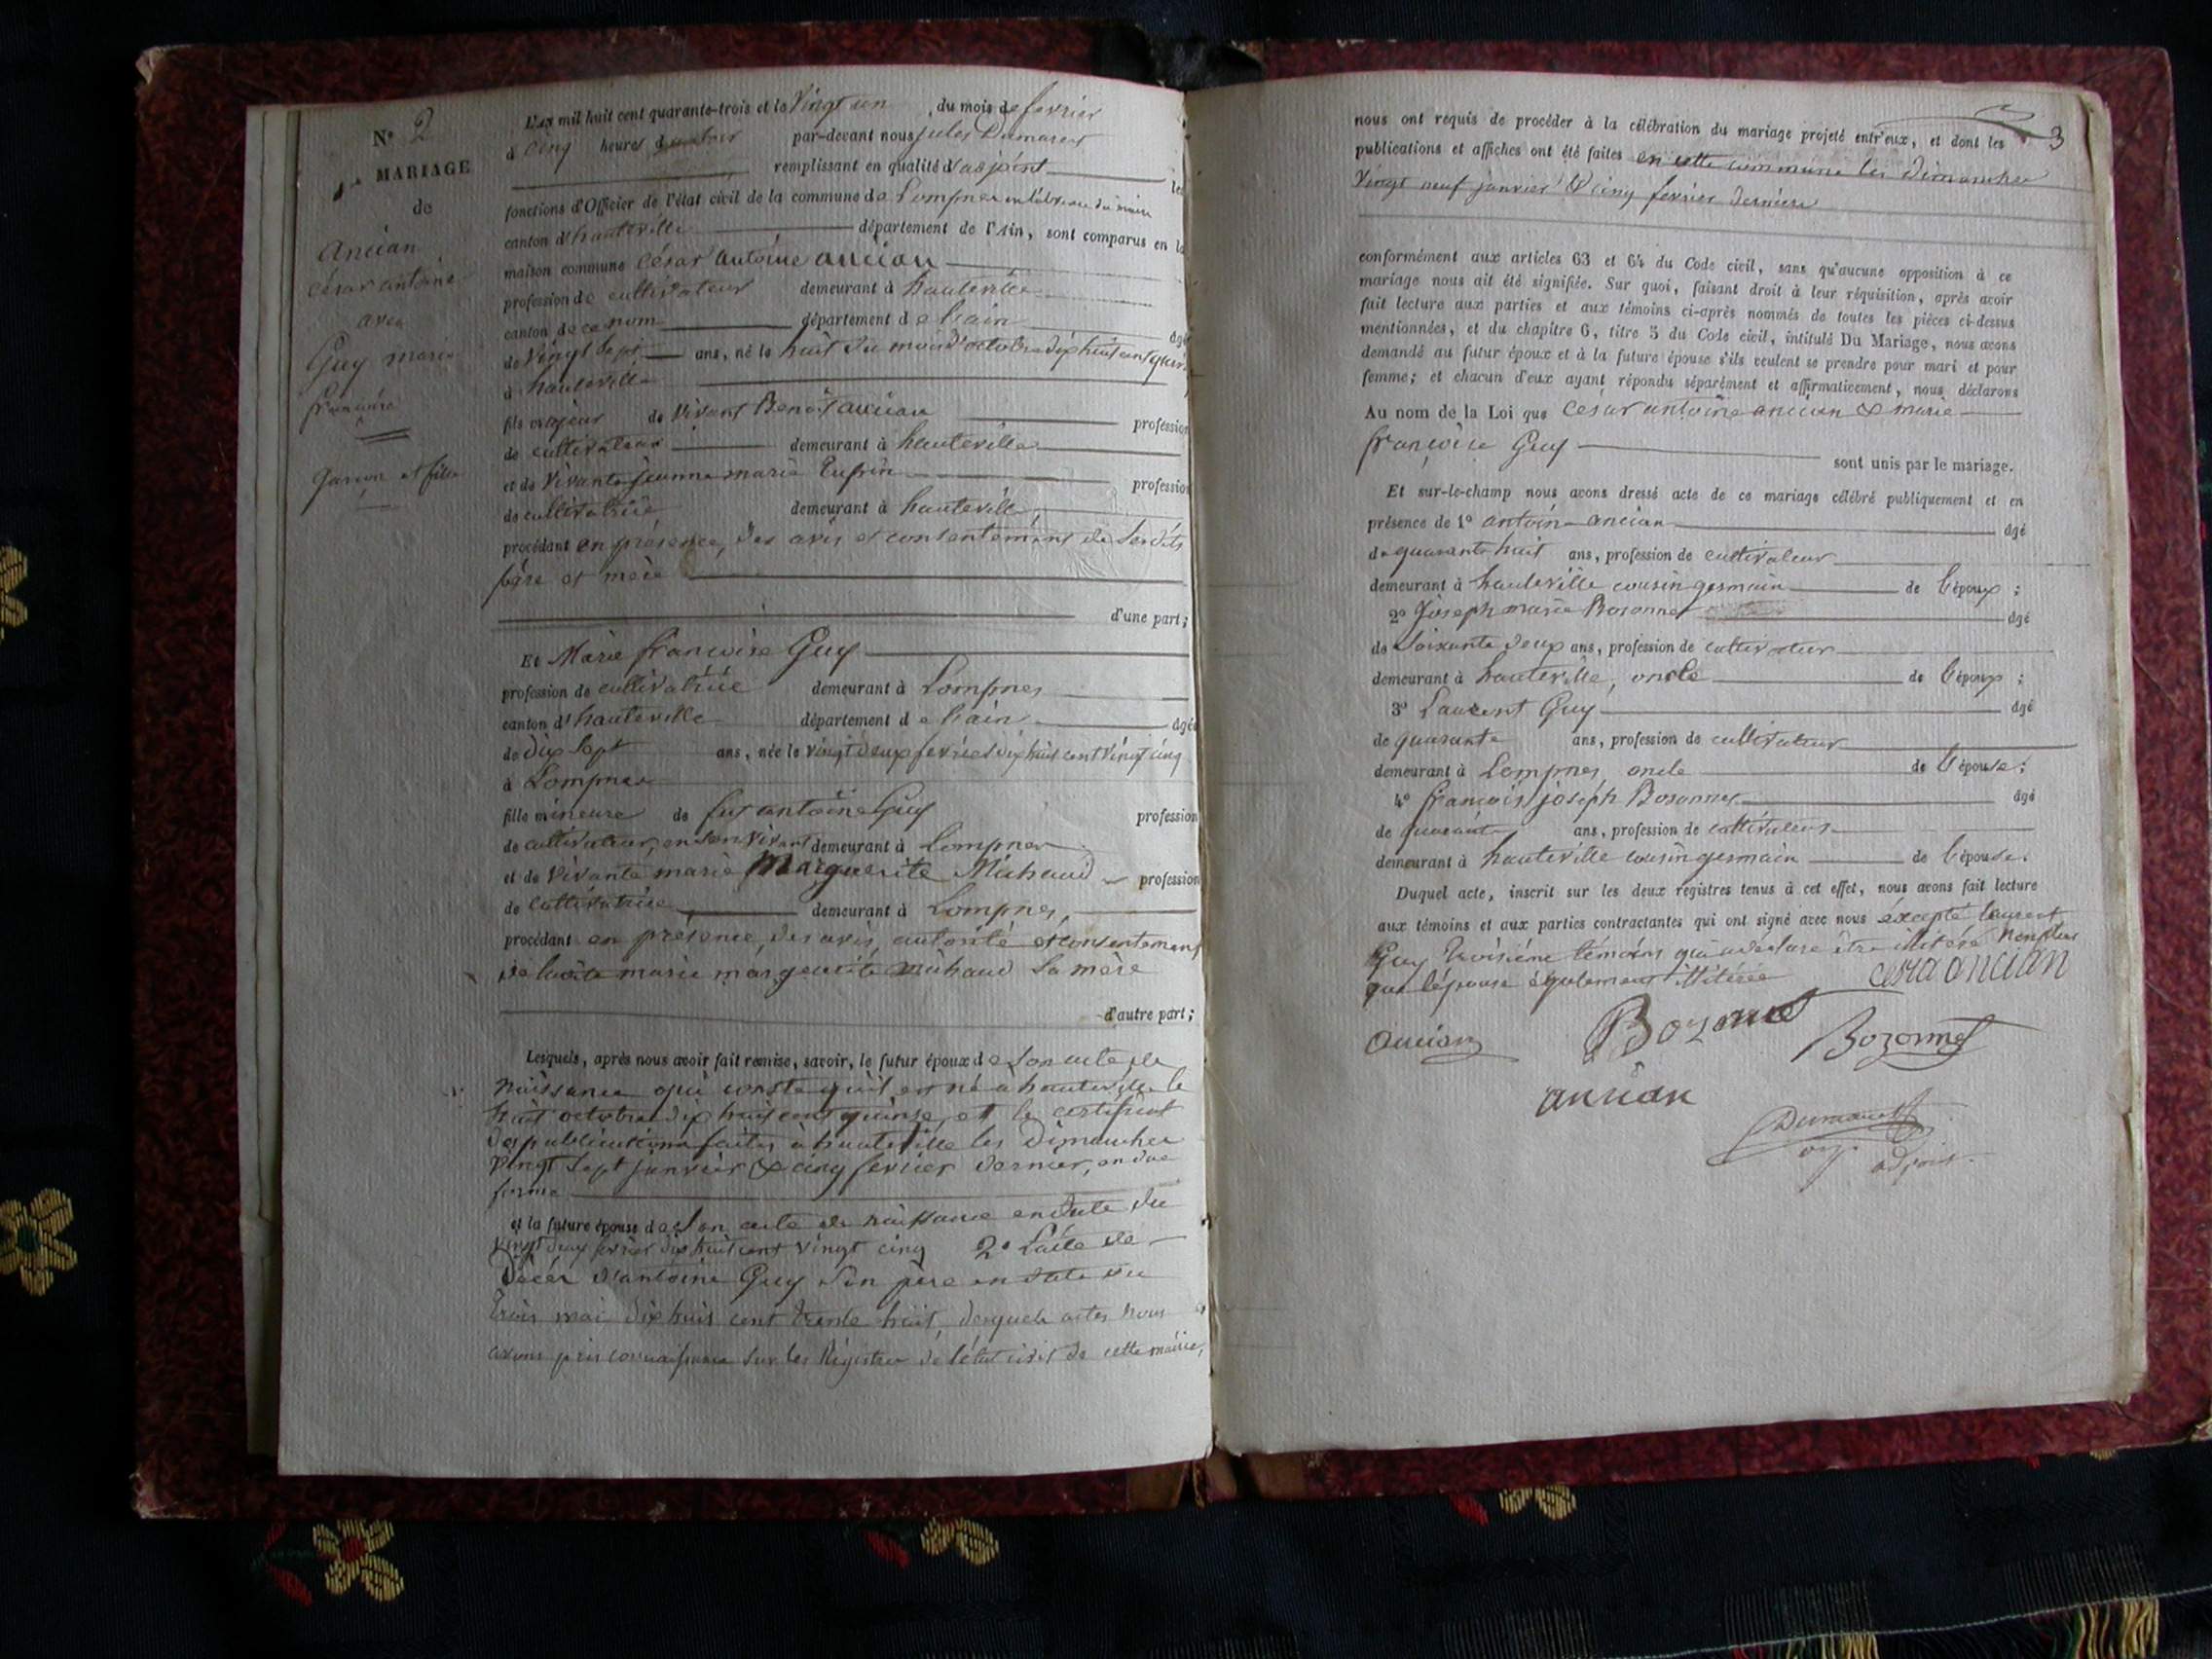 N° 2
MARIAGE
de
Ancian
césar antoine
avec
Guy marie
françoise
Garçon et fille
L'an mil huit cent quarante-trois et le Vingt un du mois de fevrier
à cinq heures du par-devant nous jules Dumarest
remplissant en qualité d'adjoint les
fonctions d'Officier de l'état civil de la commune de Lompnes en l'absence du maire
canton d'hauteville département de l'Ain, sont comparus en la
maison commune César antoine ancian
profession de cultivateur demeurant à hauteville
canton de ce nom département de l'ain âgé
de Vingt sept ans, né le huit du mois d'octobre dix huit cent quinze
à hauteville
fils majeur de Vivant Benoit ancian profession
de cultivateur demeurant à hauteville
et de Vivante jeanne marie profession
de cultivatrice demeurant à hauteville,
procédant en présence, des avis et consentement de ses dits
père et mère
d'une part;
Et Marie françoise Guy
profession de cultivatrice demeurant à Lompnes
canton d'hauteville département de l'ain âgée
de dix sept ans, née le vingt deux fevrier dix huit cent vingt cinq
à Lompnes
fille mineure de feu antoine Guy profession
de cultivateur, en son vivant demeurant à Lompnes
et de Vivante marie Marguerite Michaud profession
de cultivatrice, demeurant à Lompnes,
procédant en présence, des avis, autorité et consentement
de ladite marie marguerite michaud sa mère
d'autre part;
Lesquels, après nous avoir fait remise, savoir, le futur époux de son acte de
naissance qui conste qu'il est né à hauteville le
huit octobre dix huit cent quinze, et le certificat
des publications faites à hauteville les Dimanches
vingt sept janvier & cinq fevrier dernier, en due
forme
et la future épouse de son acte de naissance en date du
vingt deux fevrier dix huit cent vingt cinq 2° L'acte de
décès d'antoine Guy son père en date du
trois mai dix huit cent trente huit, desquels actes nous
avons pris connaissance sur les Régistres de l'état civil de cette mairie,
3
nous ont requis de procéder à la célébration du mariage projeté entr'eux, et dont les
publications et affiches ont été faites en cette commune les Dimanches
Vingt neuf janvier & cinq fevrier derniers
conformément aux articles 63 et 64 du Code civil, sans qu'aucune opposition à ce
mariage nous ait été signifiée. Sur quoi, faisant droit à leur réquisition, après avoir
fait lecture aux parties et aux témoins ci-après nommés de toutes les pièces ci-dessus
mentionnées, et du chapitre 6, titre 5 du Code civil, intitulé Du Mariage, nous avons
demandé au futur époux et à la future épouse s'ils veulent se prendre pour mari et pour
femme; et chacun d'eux ayant répondu séparément et affirmativement, nous déclarons
Au nom de la Loi que César antoine ancian & marie
françoise Guy sont unis par le mariage.
Et sur-le-champ nous avons dressé acte de ce mariage célébré publiquement et en
présence de 1° antoine ancian âgé
de quarante huit ans, profession de cultivateur
demeurant à hauteville cousin germain de l'époux;
2° Joseph marie Bozonnet âgé
de Soixante deux ans, profession de cultivateur
demeurant à hauteville, oncle de l'époux;
3° Laurent Guy âgé
de quarante ans, profession de cultivateur
demeurant à Lompnes, oncle de l'épouse;
4° françois joseph Bozonnet âgé
de quarante ans, profession de cultivateur
demeurant à hauteville cousin germain de l'épouse.
Duquel acte, inscrit sur les deux registres tenus à cet effet, nous avons fait lecture
aux témoins et aux parties contractantes qui ont signé avec nous excepté laurent
Guy troisième témoins qui a déclaré être illitéré non plus
que l'épouse également illitérée
ancian
ancian Bozonnet Bozonnet
ancian
Dumarest
adjoint